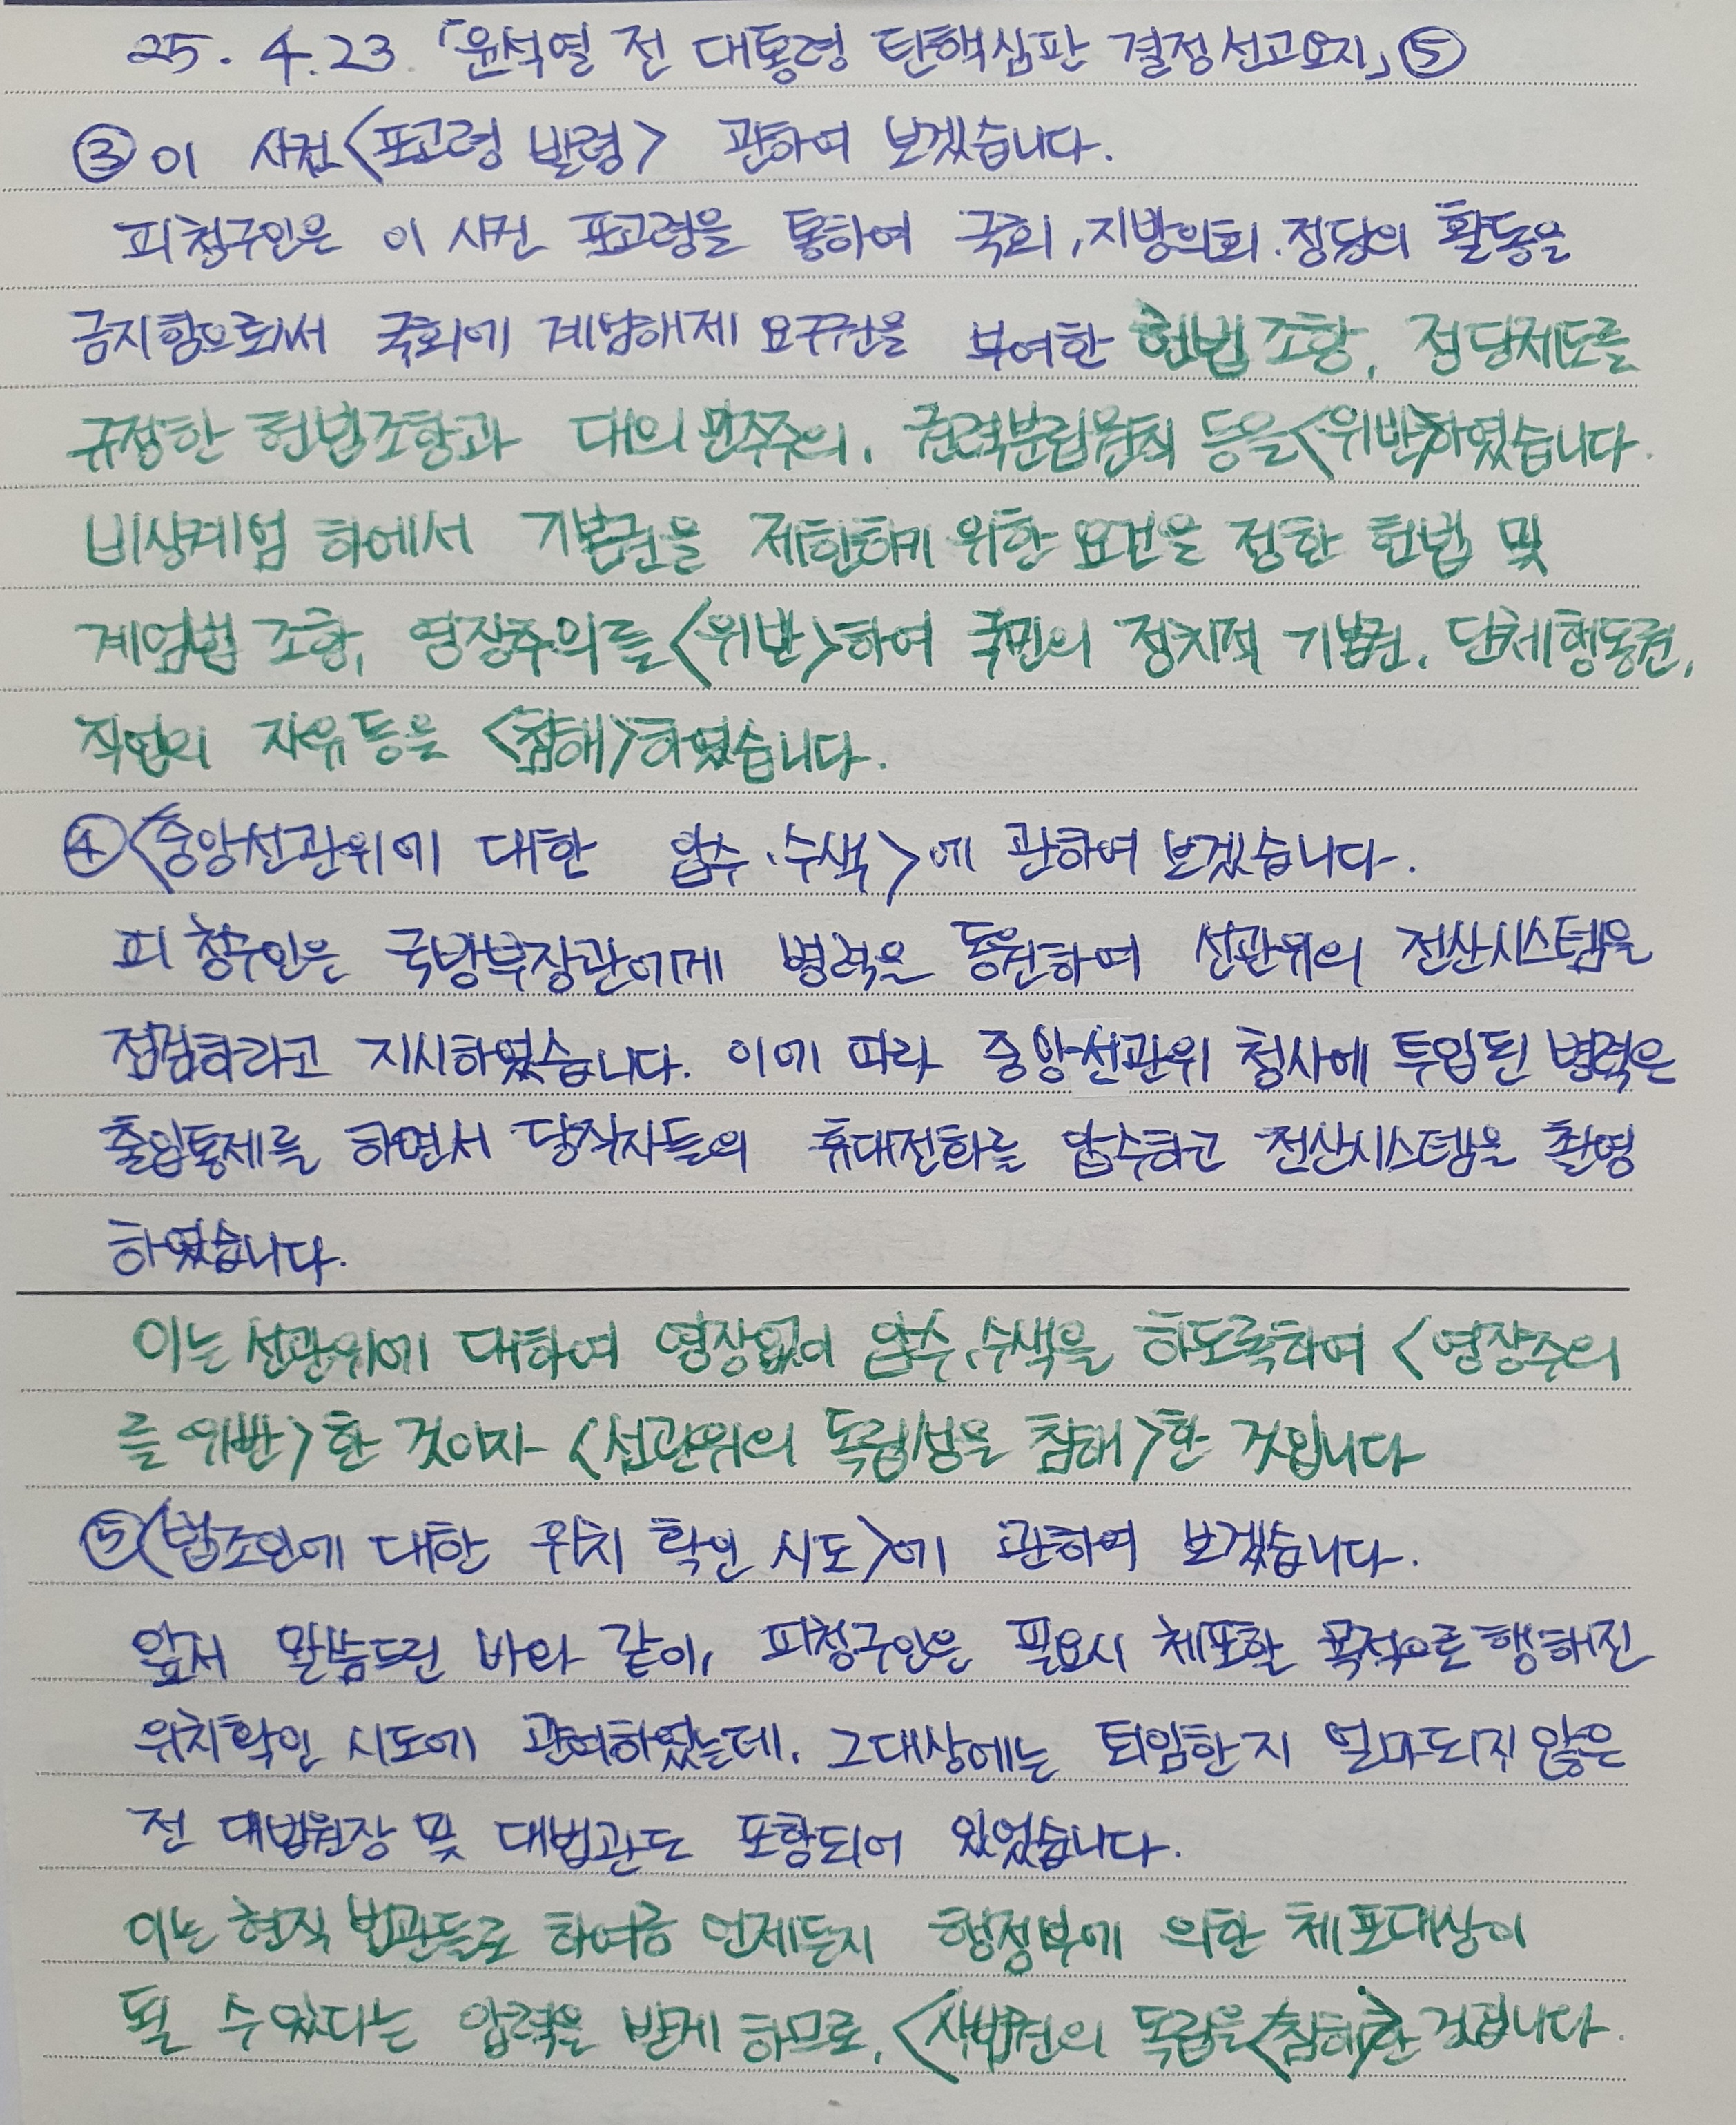 25. 4. 23 「윤석열 전 대통령 탄핵심판 결정선고요지」⑤
③ 이 사건 <포고령 발령> 관하여 보겠습니다.
피청구인은 이 사건 포고령을 통하여 국회, 지방의회. 정당의 활동을
금지함으로써 국회에 계엄해제 요구권을 부여한 헌법 조항, 정당제도를
규정한 헌법조항과 대의민주주의, 권력분립원칙 등을 <위반>하였습니다.
비상계엄 하에서 기본권을 제한하기 위한 요건을 정한 헌법 및
계엄법 조항, 영장주의를 <위반>하여 국민의 정치적 기본권, 단체행동권,
직업의 자유 등을 <침해>하였습니다.
④ <중앙선관위에 대한 압수·수색>에 관하여 보겠습니다.
피청구인은 국방부장관에게 병력을 동원하여 선관위의 전산시스템을
점검하라고 지시하였습니다. 이에 따라 중앙선관위 청사에 투입된 병력은
출입통제를 하면서 당직자들의 휴대전화를 압수하고 전산시스템을 촬영
하였습니다.
이는 선관위에 대하여 영장없이 압수·수색을 하도록하여 <영장주의
를 위반>한 것이자 <선관위의 독립성을 침해>한 것입니다
⑤ <법조인에 대한 위치 확인 시도>에 관하여 보겠습니다.
앞서 말씀드린 바와 같이, 피청구인은 필요시 체포할 목적으로 행해진
위치확인 시도에 관여하였는데, 그 대상에는 퇴임한지 얼마되지 않은
전 대법원장 및 대법관도 포함되어 있었습니다.
이는 현직 법관들로 하여금 언제든지 행정부에 의한 체포대상이
될 수 있다는 압력을 받게 하므로, <사법권의 독립을 <침해>한 것입니다.